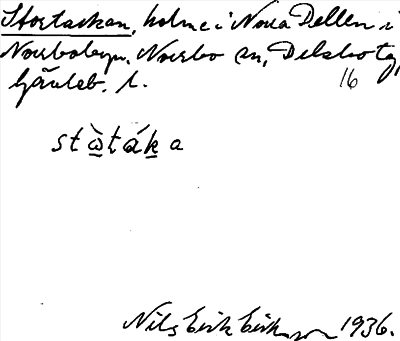 Stortaskan, holme i Norra Dellen i
Norrbobyn, Norrbo sn, Delsbo tg,
Gävleb. l. 16
stòtáka
Nils Erik Eriksson 1936.